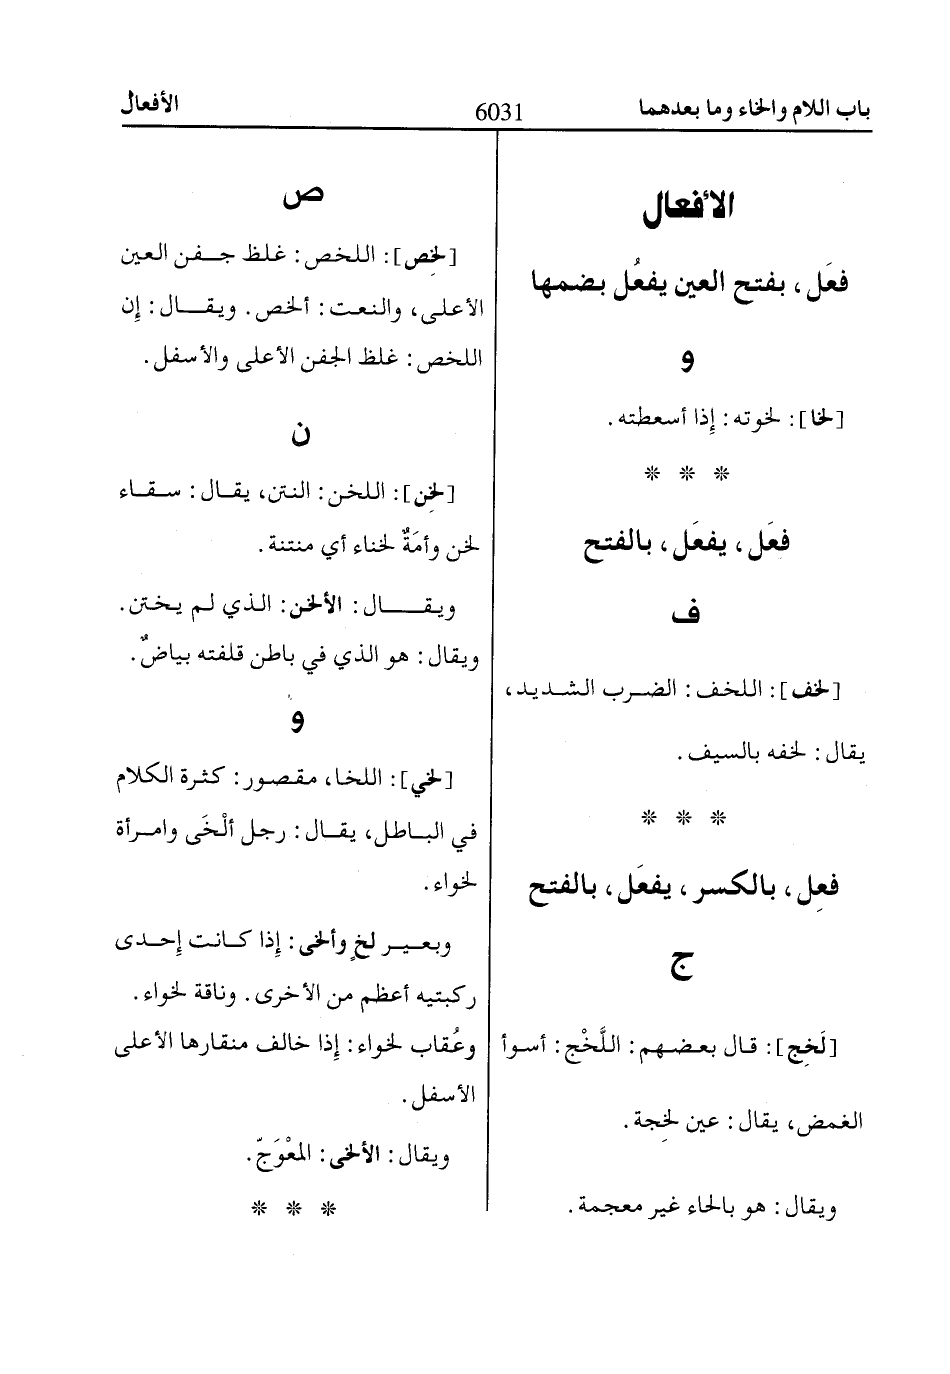 باب اللام والخاء وما بعدهما
6031
الأفعال
الأفعال
فعَل، بفتح العين يفعُل بضمها
و
[لخا]: لخوته: إذا أسعطته.
* * *
فعَل، يفعَل، بالفتح
ف
[لخف]: اللخف: الضرب الشديد،
يقال: لخفه بالسيف.
* * *
فعِل، بالكسر، يفعَل، بالفتح
ج
[لَخِج]: قال بعضهم: اللَّخْج: أسوأ
الغمض، يقال: عين لخِجة.
ويقال: هو بالحاء غير معجمة.
ص
[لخِص]: اللخص: غلظ جفن العين
الأعلى، والنعت: ألخص. ويقال: إن
اللخص: غلظ الجفن الأعلى والأسفل.
ن
[لخِن]: اللخن: النتن، يقال: سقاء
لخن وأمَةٌ لخناء أي منتنة.
ويقال: الألخن: الذي لم يختن.
ويقال: هو الذي في باطن قلفته بياضٌ.
و
[لخِي]: اللخا، مقصور: كثرة الكلام
في الباطل، يقال: رجل ألْخَى وامرأة
لخواء.
وبعير لخٍ وألخى: إذا كانت إحدى
ركبتيه أعظم من الأخرى. وناقة لخواء.
وعُقاب لخواء: إذا خالف منقارها الأعلى
الأسفل.
ويقال: الألخى: المعْوَجّ.
* * *